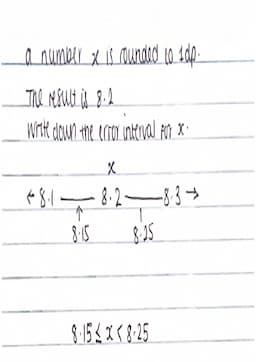 a number x is rounded to 1dp.
The result is 8.2
Write down the error interval for x.
x
← 8.1 — 8.2 — 8.3 →
↑ |
8.15 8.25
8.15 ≤ x < 8.25